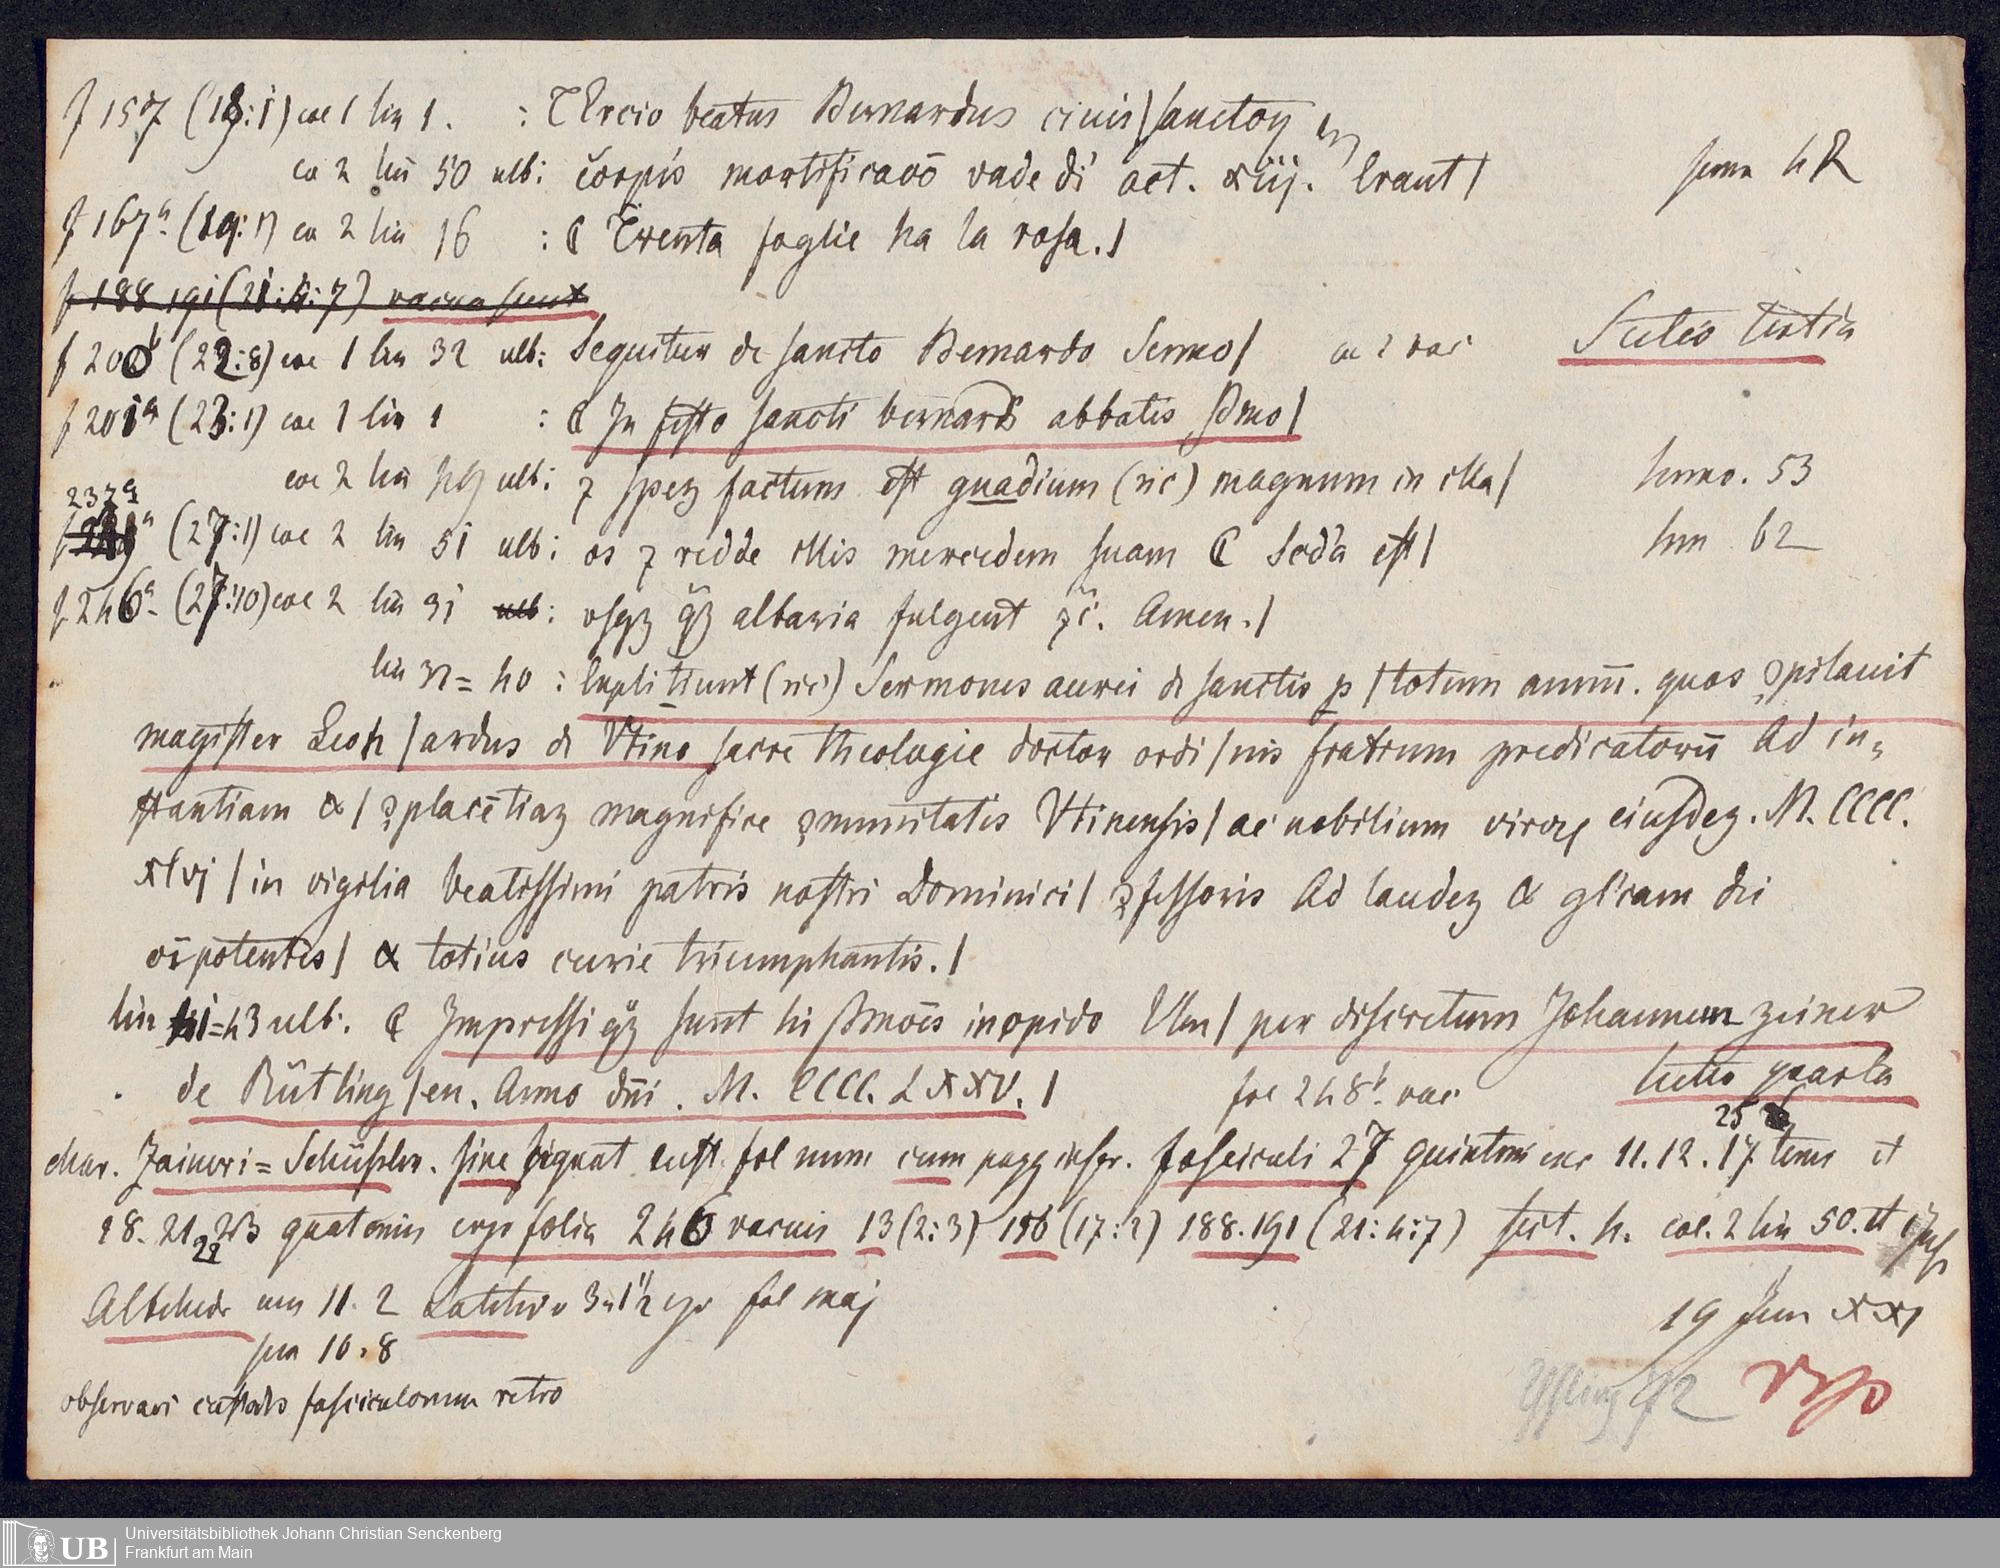 f 157 (18:1) coe 1 lin 1. : TErcio beatus Bernardus ciuis | sanctoꝝ
co 2 lin 50 ulb: corpis mortificacō vade di act. xiij. Erant | sermo 42
f 167a (19:1) co 2 lin 16 : ₵ Trenta foglie ha la rosa. |
f 188 191 (21:4:7) vacua sunt
f 200b (22:8) coe 1 lin 32 ulb: Sequitur de sancto Bernardo Sermo | co 2 vac Sectio tertia
f 201a (23:1) coe 1 lin 1 : ₵ In festo sancti bernardi abbatis, sermo |
coe 2 lin 49 ulb: ⁊ spez factum est guadium (sic) magnum in illa | sermo. 53
237a
(27:1) coe 2 lin 51 ulb: os ⁊ redde illis mercedem suam ₵ Scd'a est | serm 62
f 246a (27:10) coe 2 lin 31 ulb: vsqꝫ qꝫ altaria fulgent ⁊c̄. Amen. |
lin 32=40 : Expli tiunt (sic) Sermones aurei de sanctis p | totum annū. quos ꝯpilauit
magister Leon | ardus de Vtino sacre theologie doctor ordi | nis fratrum predicatorū Ad in-
stantiam & | ꝯplacētiaꝫ magnifice ꝯmunitatis Vtinensis | ac nobilium viroꝝ eiusdeꝫ. M. CCCC.
xlvj | in vigilia beatissimi patris nostri Dominici | ꝯfessoris Ad laudeꝫ & gl'iam dei
oīpotentis | & totius curie triumphantis. |
lin 41=43 ulb. ₵ Impressi qꝫ sunt hi sermōes in opido Vlm | per discretum Johannem zeiner
de Rütling | en. Anno dn̄i. M. CCCC. LXXV. | fol 248b vac. Sectio quarta
char. Zaineri = Schüssler. sine signat cust fol num cum pagg inscr. fasciculi 27 quinterni exc 11. 12. 17 25 terni et
18. 21 22 23 quaterniis ergo folia 246 vacuis 13 (2:3) 156 (17:2) 188. 191 (21:4:7) sect. 4. col. 2 lin 50. et
11. 2 3. 1½ fol maj
16. 8 19 Jun XXI
observari custodes fasciculorum retro